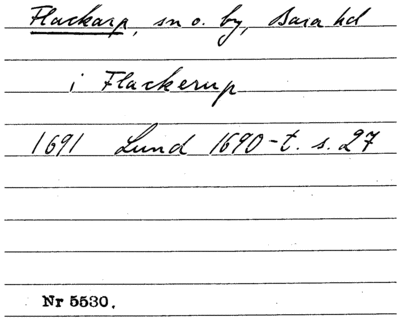 Flackarp, sn o. by, Bara hd
i Flackerup
1691 Lund 1690-t. s. 27
Nr 5530.